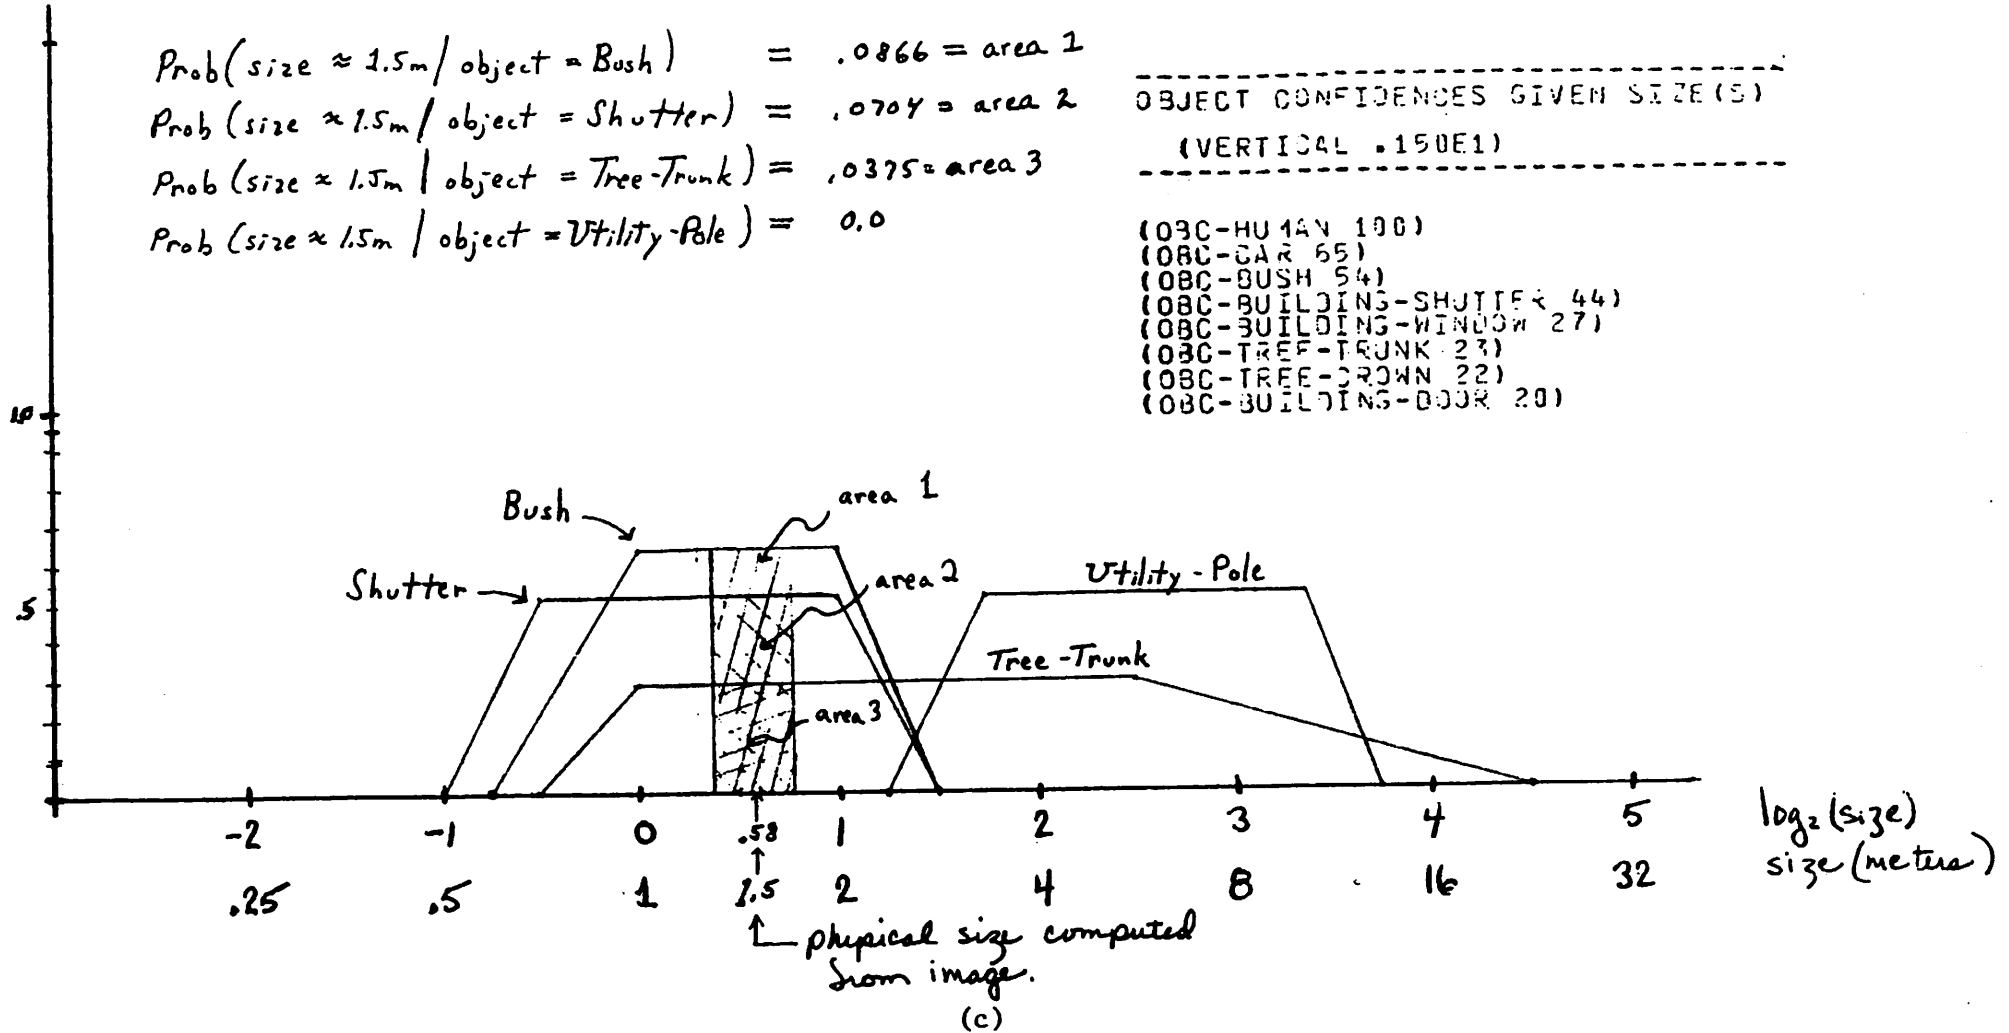 Prob(size ≈ 1.5m / object = Bush) = .0866 = area 1
Prob (size ≈ 1.5m / object = Shutter) = .0704 = area 2
Prob (size ≈ 1.5m / object = Tree-Trunk) = .0375 = area 3
Prob (size ≈ 1.5m / object = Utility-Pole) = 0.0
OBJECT CONFIDENCES GIVEN SIZE(S)
(VERTICAL .150E1)
(OBC-HUMAN 100)
(OBC-CAR 65)
(OBC-BUSH 54)
(OBC-BUILDING-SHUTTER 44)
(OBC-BUILDING-WINDOW 27)
(OBC-TREE-TRUNK 23)
(OBC-TREE-CROWN 22)
(OBC-BUILDING-DOOR 20)
1.0
Bush
area 1
Shutter
area 2
Utility-Pole
.5
Tree-Trunk
area 3
-2 -1 0 .58 1 2 3 4 5 log₂(size)
.25 .5 1 1.5 2 4 8 16 32 size (meters)
physical size computed
from image.
(c)